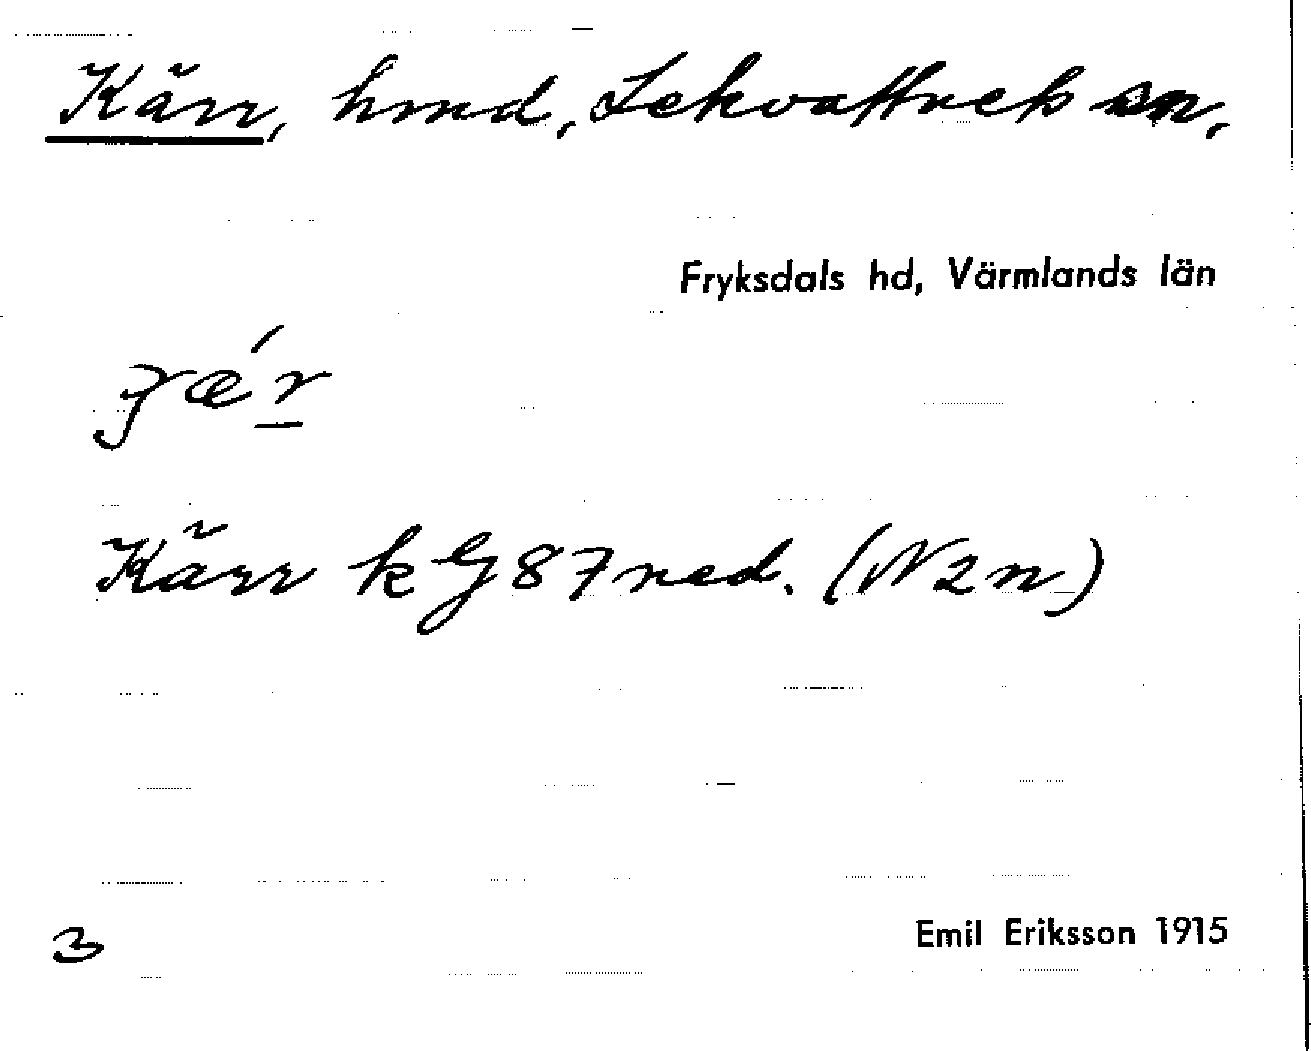 Kärr, hmd, Lekvattnets sn,
Fryksdals hd, Värmlands län
Kärr k G 87 ned. (N2n)
3
Emil Eriksson 1915